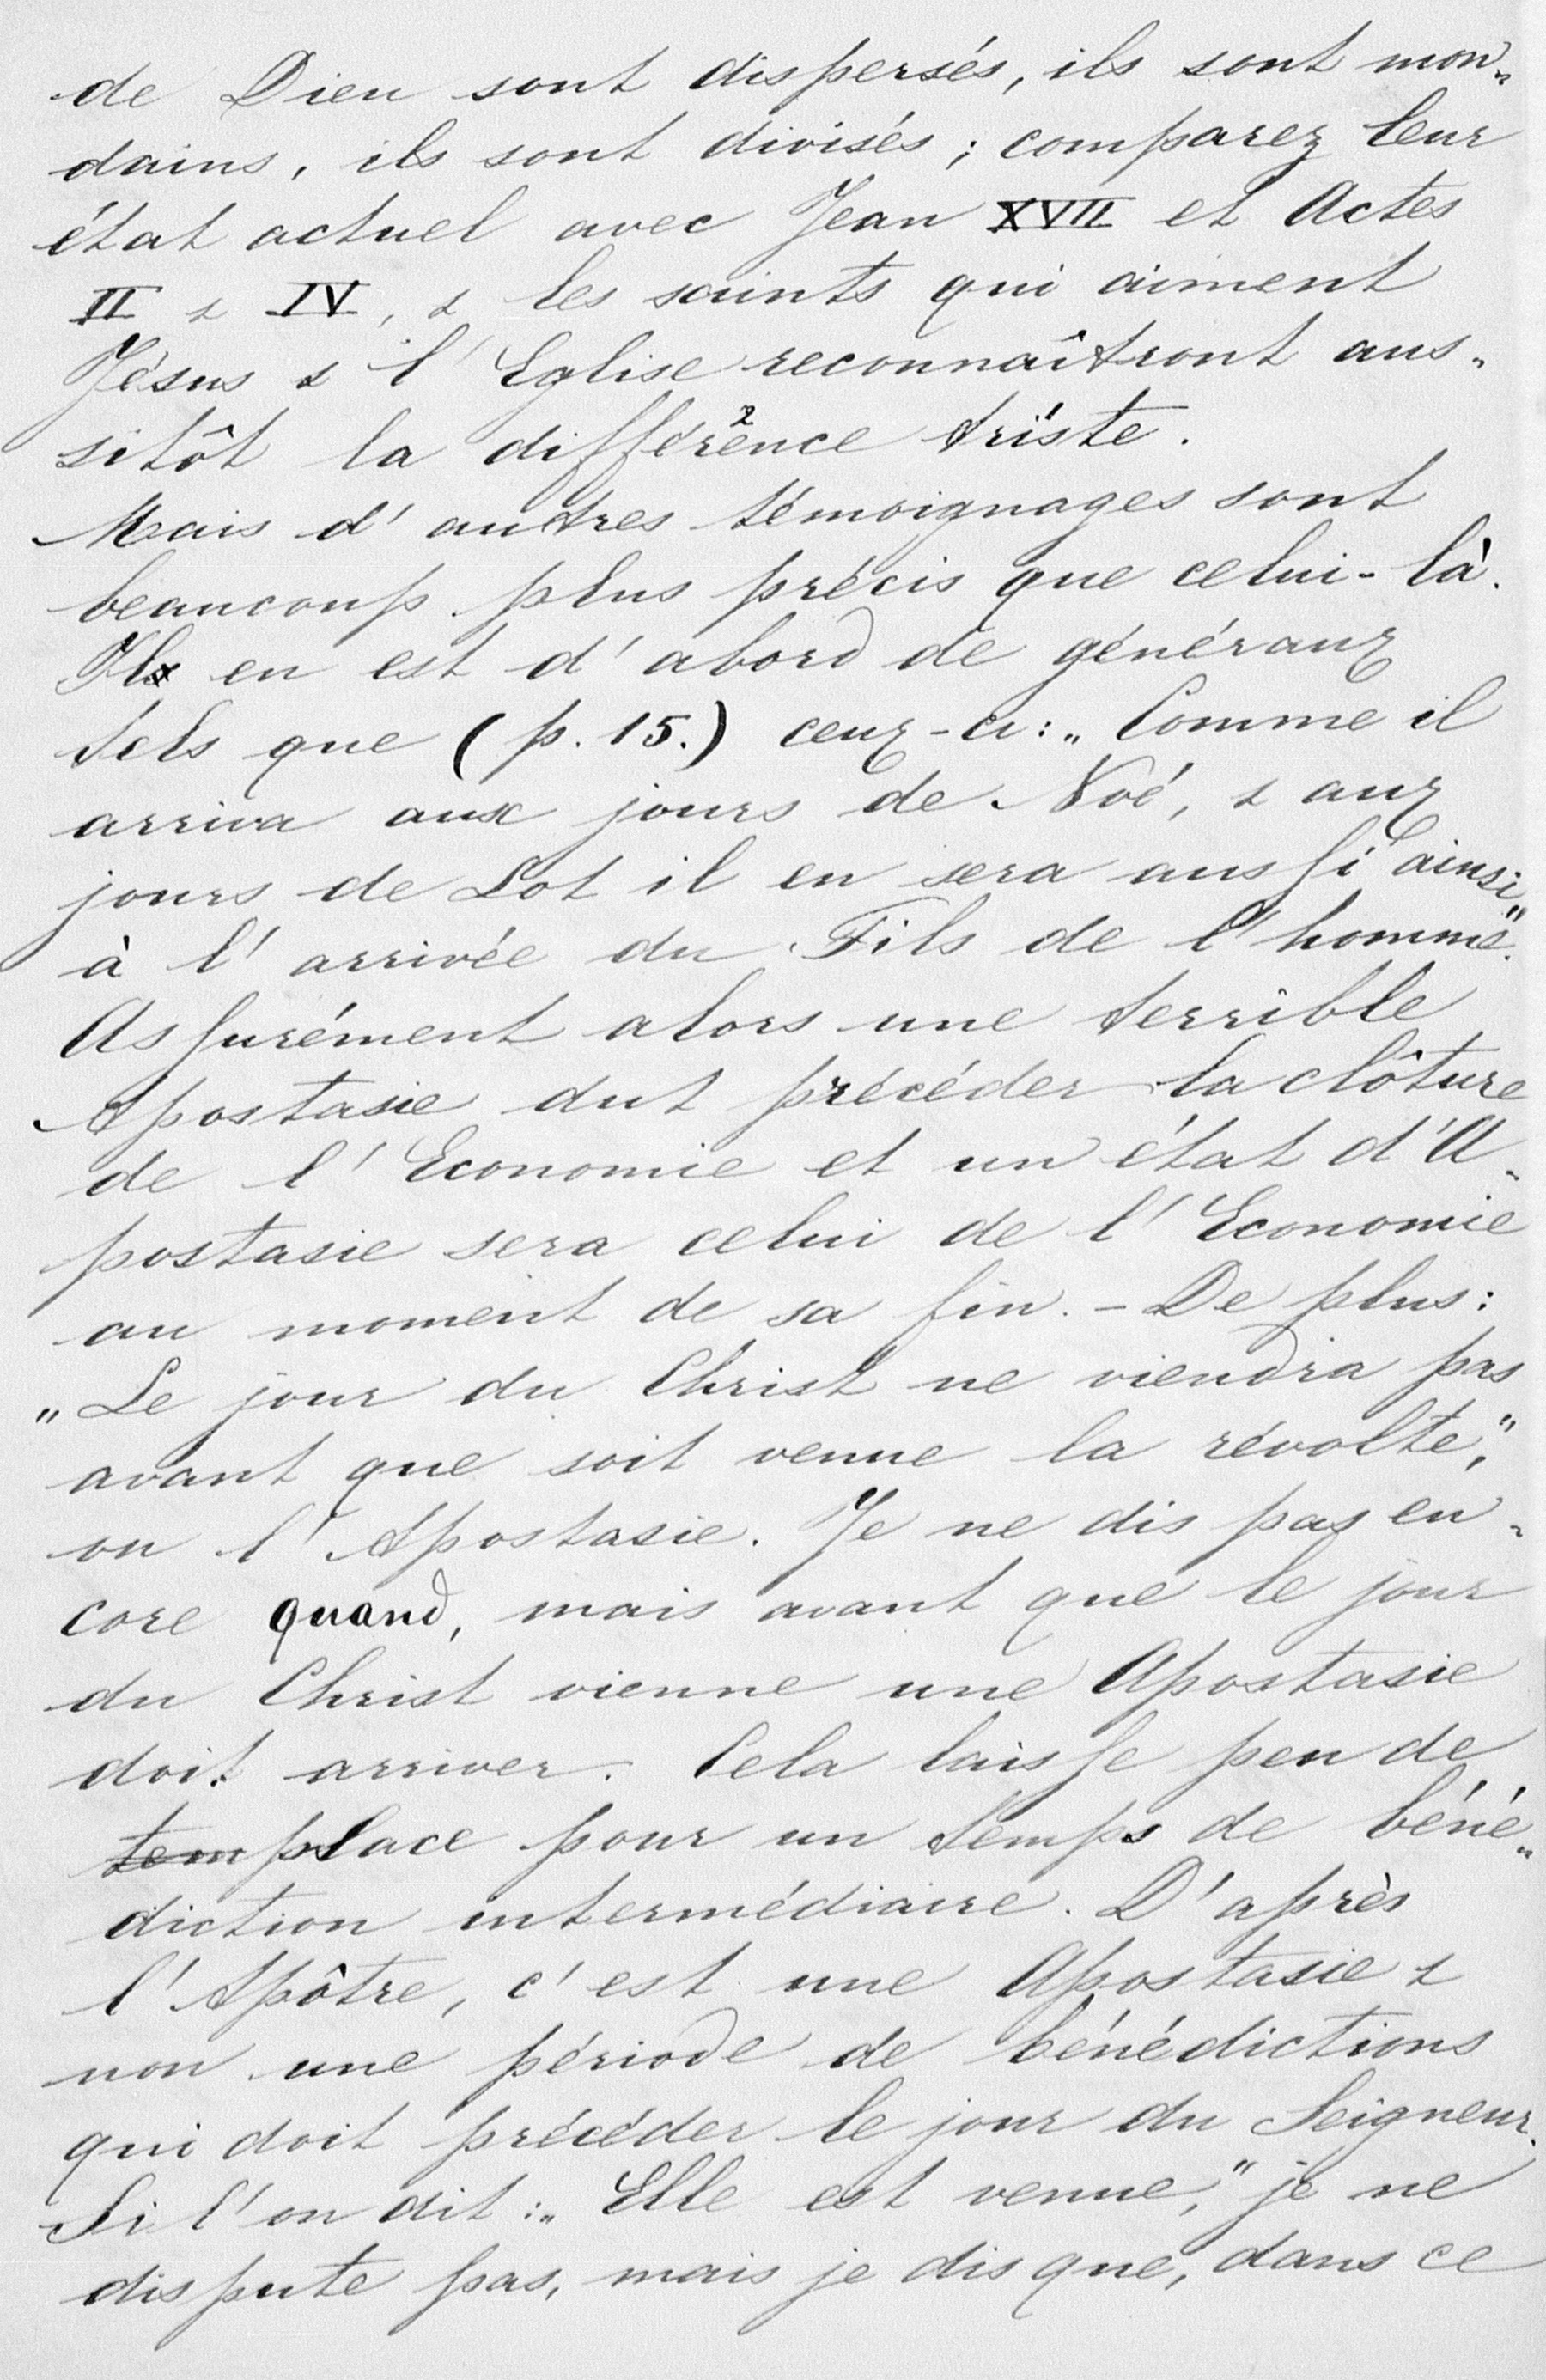 de Dieu sont dispersés, ils sont mon„
dains, ils sont divisés; comparez leur
état actuel avec Jean XVII et Actes
II & IV, & les saints qui aiment
Jésus & l'Eglise reconnaîtront aus„
sitôt la différence triste.
Mais d'autres témoignages sont
beaucoup plus précis que celui-là.
Il en est d'abord de généraux
tels que (p. 15.) ceux-ci: „Comme il
arriva aux jours de Noé, & aux
jours de Lot il en sera aussi ainsi
à l'arrivée du Fils de l'homme."
Assurément alors une terrible
Apostasie dut précéder la clôture
de l'Economie et un état d'A„
postasie sera celui de l'Economie
au moment de sa fin. – De plus:
„Le jour du Christ ne viendra pas
avant que soit venue la révolte",
ou l'Apostasie. Je ne dis pas en„
core quand, mais avant que le jour
du Christ vienne une Apostasie
doit arriver. Cela laisse peu de
tem place pour un temps de béné„
diction intermédiaire. D'après
l'Apôtre, c'est une Apostasie &
non une période de bénédictions
qui doit précéder le jour du Seigneur.
Si l'on dit: „Elle est venue," je ne
dispute pas, mais je dis que, dans ce